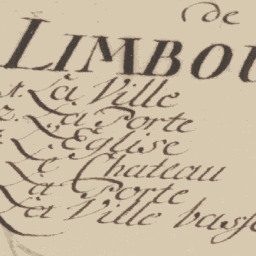 de
LIMBOU
1. La Ville
2. La Porte
L'Eglise
Le Chateau
La Porte
La Ville basse